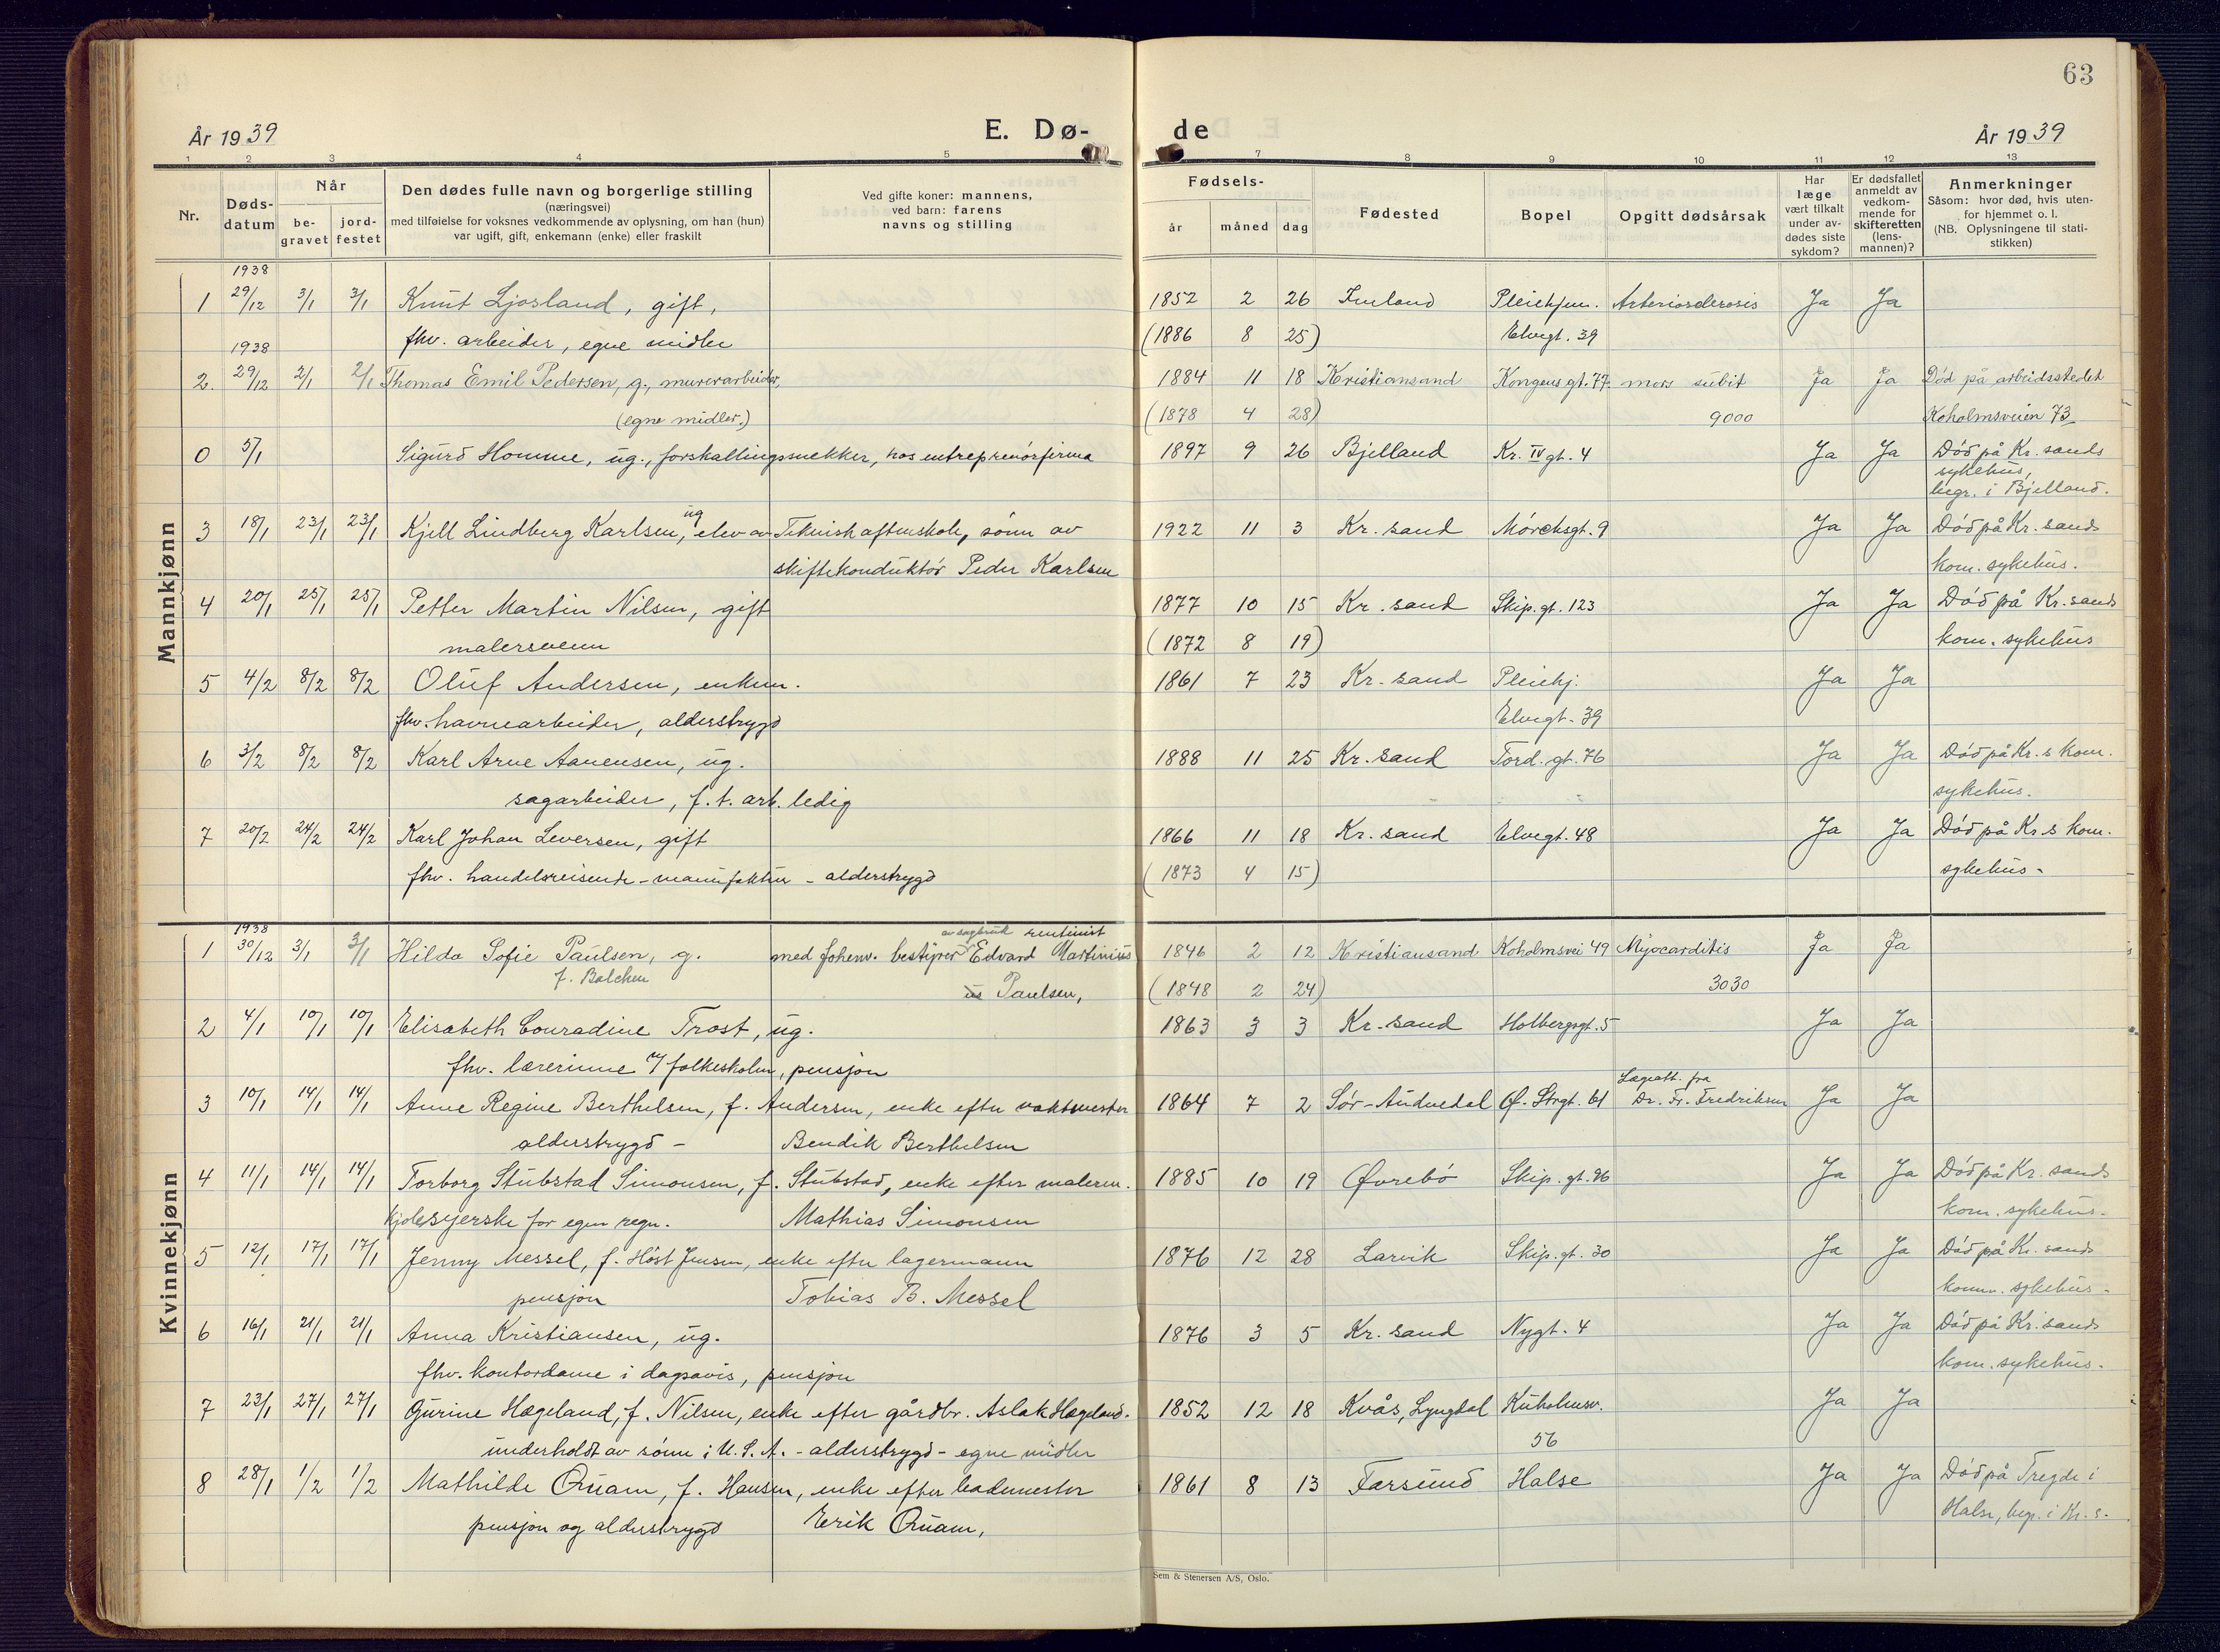 63
År 1939 E. Dø- de År 1939
1 2 3 4 5 7 8 9 10 11 12 13
Nr. Døds-datum Når be-gravet jord-festet Den dødes fulle navn og borgerlige stilling (næringsvei) med tilføielse for voksnes vedkommende av oplysning, om han (hun) var ugift, gift, enkemann (enke) eller fraskilt Ved gifte koner: mannens, ved barn: farens navns og stilling Fødsels- år måned dag Fødested Bopel Opgitt dødsårsak Har læge vært tilkalt under av-dødes siste sykdom? Er dødsfallet anmeldt av vedkom-mende for skifteretten (lens-mannen)? Anmerkninger Såsom: hvor død, hvis uten-for hjemmet o. l. (NB. Oplysningene til stati-stikken)
Mannkjønn
1938
1 29/12 3/1 3/1 Knut Ljosland, gift, 1852 2 26 Pleiehjem. Arteriosclerosis Ja Ja
fhv. arbeider, egne midler (1886 8 25) Elvegt. 39
1938
2. 29/12 2/1 2/1 Thomas Emil Pedersen, g., murerarbeider, 1884 11 18 Kristiansand Kongensgt. 77 mors subit Ja Ja Død på arbeidsstedet
(egne midler.) (1878 4 28) 9000 Koholmsveien 73
0 5/1 Sigurd Homme, ug., forskallingssnekker, hos entreprenörfirma 1897 9 26 Bjelland Kr. IV gt. 4 Ja Ja Död på Kr. sands
sykehus,
begr. i Bjelland.
3 18/1 23/1 23/1 Kjell Lindberg Karlsen, ug elev av Teknisk aftenskole, sönn av 1922 11 3 Kr. sand Mörcksgt. 9 Ja Ja Död på Kr. sands
skiftekonduktör Peder Karlsen kom. sykehus.
4 20/1 25/1 25/1 Petter Martin Nilsen, gift 1877 10 15 Kr. sand Skip. gt. 123 Ja Ja Död på Kr. sands
malersvenn (1872 8 19) kom. sykehus
5 4/2 8/2 8/2 Oluf Andersen, enkem. 1861 7 23 Kr. sand Pleiehj. Ja Ja
fhv. havnearbeider, alderstrygd Elvegt. 39
6 3/2 8/2 8/2 Karl Arne Aanensen, ug. 1888 11 25 Kr. sand Tord. gt. 76 Ja Ja Död på Kr. s kom.
sagarbeider, f. t. arb. ledig sykehus.
7 20/2 24/2 24/2 Karl Johan Leversen, gift 1866 11 18 Kr. sand Elvegt. 48 Ja Ja Död på Kr. s kom.
fhv. handelsreisende - manufaktur - alderstrygd (1873 4 15) sykehus.
Kvinnekjønn
1938 av sagbruk rentinist
1 30/12 3/1 3/1 Hilda Sofie Paulsen, g. med bestyrer Edvard Martinius 1846 2 12 Kristiansand Koholmsvei 49 Myocarditis Ja Ja
f. Balchen Paulsen, (1848 2 24) 3030
2 4/1 10/1 10/1 Elisabeth Conradine Trost, ug. 1863 3 3 Kr. sand Holbergsgt. 5 Ja Ja
fhv. lærerinne v/ folkeskolen, pensjon
Lægeatt. fra
3 10/1 14/1 14/1 Anne Regine Berthelsen, f. Andersen, enke efter vaktmester 1864 7 2 Sör-Audnedal Ø. Strgt. 61 Dr. Fr. Fredriksen Ja Ja
alderstrygd - Bendik Berthelsen
4 11/1 14/1 14/1 Torborg Stubstad Simonsen, f. Stubstad, enke efter malerm. 1885 10 19 Øvrebö Skip. gt. 96 Ja Ja Död på Kr. sands
kjolesyerske for egen regn. Mathias Simonsen kom. sykehus.
5 12/1 17/1 17/1 Jenny Messel, f. Höst Jensen, enke efter lagermann 1876 12 28 Larvik Skip. gt. 30 Ja Ja Död på Kr. sands
pensjon Tobias B. Messel komm. sykehus.
6 16/1 21/1 21/1 Anna Kristiansen, ug. 1876 3 5 Kr. sand Nygt. 4 Ja Ja Död på Kr. sands
fhv. kontordame i dagsavis, pensjon kom. sykehus.
7 23/1 27/1 27/1 Gurine Hægeland, f. Nilsen, enke efter gårdbr. Aslak Hægeland. 1852 12 18 Kvås, Lyngdal Kuholmsv. Ja Ja
underholdt av sönn i U.S.A. - alderstrygd - egne midler 56
8 28/1 1/2 1/2 Mathilde Qvam, f. Hansen, enke efter lademester 1861 8 13 Farsund Halse Ja Ja Död på Tregde i
pensjon og alderstrygd Erik Qvam, Halse, begr. i Kr. s.
Sem & Stenersen A/S, Oslo.